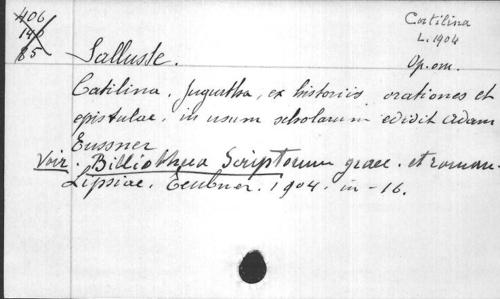 406
Catilina
L. 1904
85
Salluste.
Op. om.
Catilina. Jugurtha, ex historiis orationes et
epistulae. in usum scholarum edidit Adam
Eussner
Voir. Bibliotheca Scriptorum graec. et roman.
Lipsiae. Teubner. 1904. in-16.